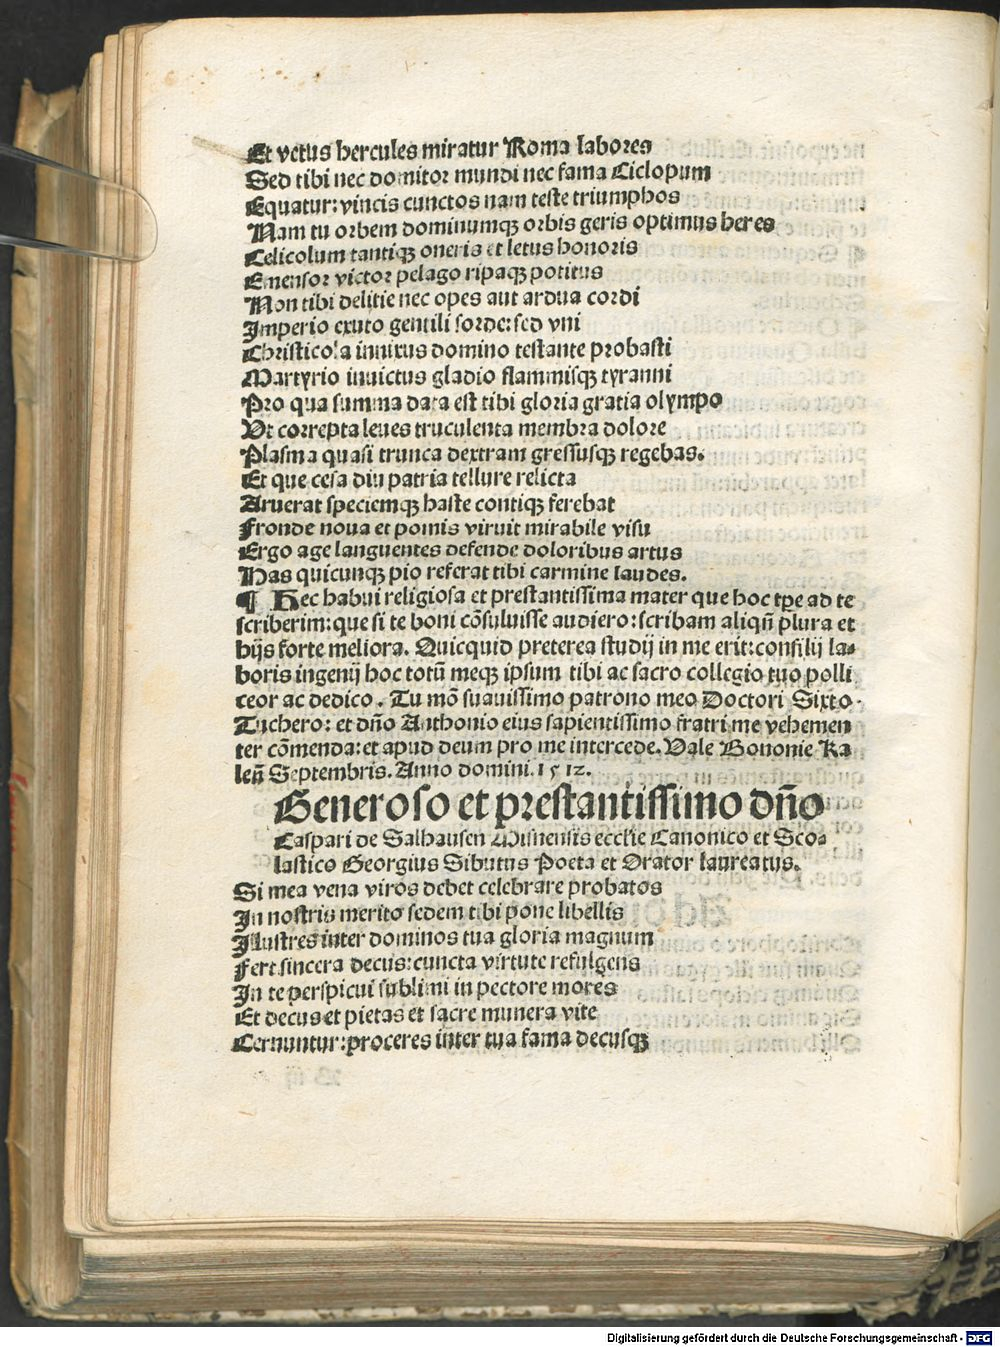 Et vetus hercules miratur Roma labores
Sed tibi nec domitor mundi nec fama Ciclopum
Equatur: vincis cunctos nam teste triumphos
Nam tu orbem dominumqꝫ orbis geris optimus heres
Celicolum tantiqꝫ oneris et letus honoris
Emensor victor pelago ripaqꝫ potitus
Non tibi delitie nec opes aut ardua cordi
Imperio exuto gentili sorde: sed vni
Christicola innixus domino testante probasti
Martyrio invictus gladio flammisqꝫ tyranni
Pro qua summa data est tibi gloria gratia olympo
Vt correpta leues truculenta membra dolore
Plasma quasi trunca dextram gressusqꝫ regebas.
Et que cesa diu patria tellure relicta
Aruerat speciemqꝫ haste contiqꝫ ferebat
Fronde noua et pomis viruit mirabile visu
Ergo age languentes defende doloribus artus
Has quicunqꝫ pio referat tibi carmine laudes.
¶ Hec habui religiosa et prestantissima mater que hoc tpe ad te
scriberim: que si te boni cōsuluisse audiero: scribam aliqn̄ plura et
hijs forte meliora. Quicquid preterea studij in me erit: consilij la-
boris ingenij hoc totū meqꝫ ipsum tibi ac sacro collegio tuo polli
ceor ac dedico. Tu mō suauissimo patrono meo Doctori Sixto
Tuchero: et dn̄o Anthonio eius sapientissimo fratri me vehemen
ter cōmenda: et apud deum pro me intercede. Vale Bononie Ka
len̄ Septembris. Anno domini. 1512.
Generoso et prestantissimo dn̄o
Caspari de Salhausen Misnensis ecclie Canonico et Sco-
lastico Georgius Sibutus Poeta et Orator laureatus.
Si mea vena viros debet celebrare probatos
In nostris merito sedem tibi pone libellis
Illustres inter dominos tua gloria magnum
Fert sincera decus: cuncta virtute refulgens
In te perspicui sublimi in pectore mores
Et decus et pietas et sacre munera vite
Cernuntur: proceres inter tua fama decusqꝫ
Digitalisierung gefördert durch die Deutsche Forschungsgemeinschaft - DFG